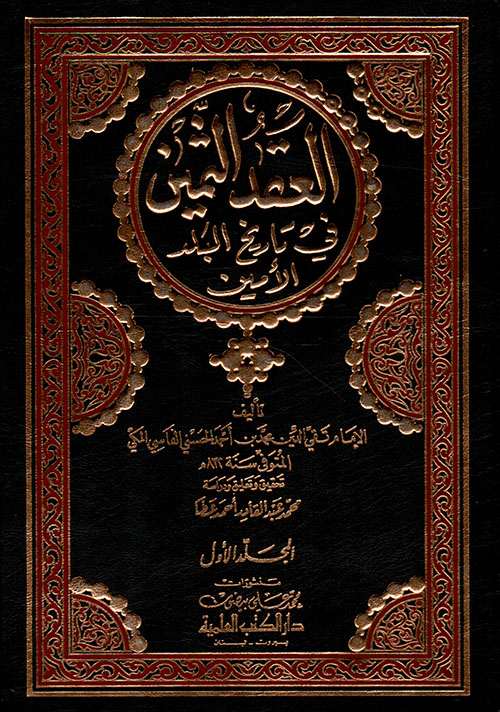 العقد الثمين
في تاريخ البلد
الأمين
تأليف
الإمام تقي الدين محمد بن أحمد الحسني الفاسي المكي
المتوفى سنة ٨٣٢ هـ
تحقيق وتعليق ودراسة
محمد عبد القادر أحمد عطا
المجلد الأول
منشورات
محمد علي بيضون
دار الكتب العلمية
بيروت - لبنان